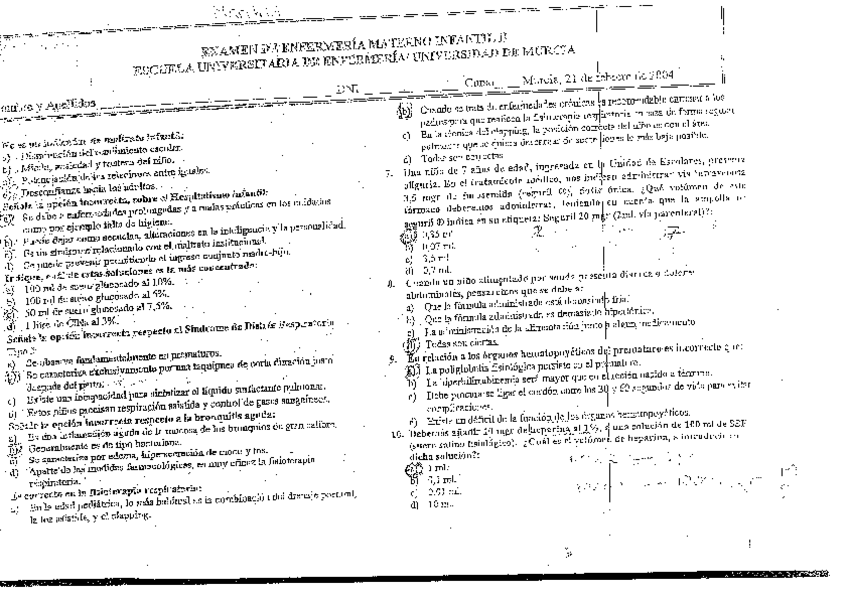 EXAMEN DE ENFERMERÍA MATERNO INFANTIL II
ESCUELA UNIVERSITARIA DE ENFERMERÍA/ UNIVERSIDAD DE MURCIA
y Apellidos DNI Curso Murcia, 21 de febrero de 2004
No es un indicador de maltrato infantil:
a) Disminución del rendimiento escolar.
b) Miedo, ansiedad y tristeza del niño.
c) Potenciación de las relaciones entre iguales.
d) Desconfianza hacia los adultos.
Señale la opción incorrecta, sobre el Hospitalismo infantil:
a) Se debe a enfermedades prolongadas y a malas prácticas en los cuidados
como por ejemplo falta de higiene.
b) Puede dejar como secuelas, alteraciones en la inteligencia y la personalidad.
c) Es un síndrome relacionado con el maltrato institucional.
d) Se puede prevenir permitiendo el ingreso conjunto madre-hijo.
Indique, cuál de estas soluciones es la más concentrada:
a) 100 ml de suero glucosado al 10%.
b) 100 ml de suero glucosado al 5%.
c) 50 ml de suero glucosado al 7,5%.
d) 1 litro de ClNa al 3%.
Señale la opción incorrecta respecto al Síndrome de Distrés Respiratorio
Tipo
a) Se observa fundamentalmente en prematuros.
b) Se caracteriza exclusivamente por una taquipnea de corta duración justo
después del parto.
c) Existe una incapacidad para sintetizar el líquido surfactante pulmonar.
d) Estos niños precisan respiración asistida y control de gases sanguíneos.
Señale la opción incorrecta respecto a la bronquitis aguda:
a) Es una inflamación aguda de la mucosa de los bronquios de gran calibre.
b) Generalmente es de tipo bacteriana.
c) Se caracteriza por edema, hipersecreción de moco y tos.
d) Aparte de las medidas farmacológicas, es muy eficaz la fisioterapia
respiratoria.
Es correcto en la fisioterapia respiratoria:
a) En la edad pediátrica, lo más habitual es la combinación del drenaje postural,
la tos asistida, y el clapping.
b) Cuando se trata de enfermedades crónicas es recomendable enseñar a los
padres para que realicen la fisioterapia respiratoria en casa de forma regular
c) En la técnica del clapping, la posición correcta del niño es con el área
pulmonar que se quiera descargar de secreciones lo más baja posible.
d) Todas son correctas
7. Una niña de 7 años de edad, ingresada en la Unidad de Escolares, presenta
oliguria. En el tratamiento médico, nos indican administrar vía intravenosa
3,5 mgr de furosemida (seguril ®), dosis única. ¿Qué volumen de este
fármaco deberemos administrar, teniendo en cuenta que la ampolla de
seguril ® indica en su etiqueta: Seguril 20 mgr (2ml. vía parenteral)?:
a) 0,35 ml
b) 0,07 ml.
c) 3,5 ml
d) 0,7 ml.
8. Cuando un niño alimentado por sonda presenta diarrea o dolores
abdominales, pensaremos que se debe a:
a) Que la fórmula administrada está demasiado fría.
b) Que la fórmula administrada es demasiado hipertónica.
c) La administración de la alimentación junto a algún medicamento
d) Todas son ciertas.
9. En relación a los órganos hematopoyéticos del prematuro es incorrecto que:
a) La poliglobulia fisiológica persiste en el prematuro.
b) La hiperbilirrubinemia será mayor que en el recién nacido a término.
c) Debe procurarse ligar el cordón entre los 30 y 60 segundos de vida para evitar
complicaciones.
d) Existe un déficit de la función de los órganos hematopoyéticos.
10. Deberemos añadir 10 mgr de heparina al 1%, a una solución de 100 ml de SSF
(suero salino fisiológico). ¿Cuál es el volumen de heparina, a introducir en
dicha solución?:
a) 1 ml.
b) 0,1 ml.
c) 0,01 ml.
d) 10 ml.